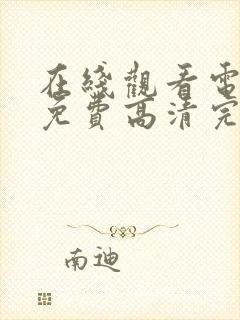 在綫觀看電
免費高清完
南迪